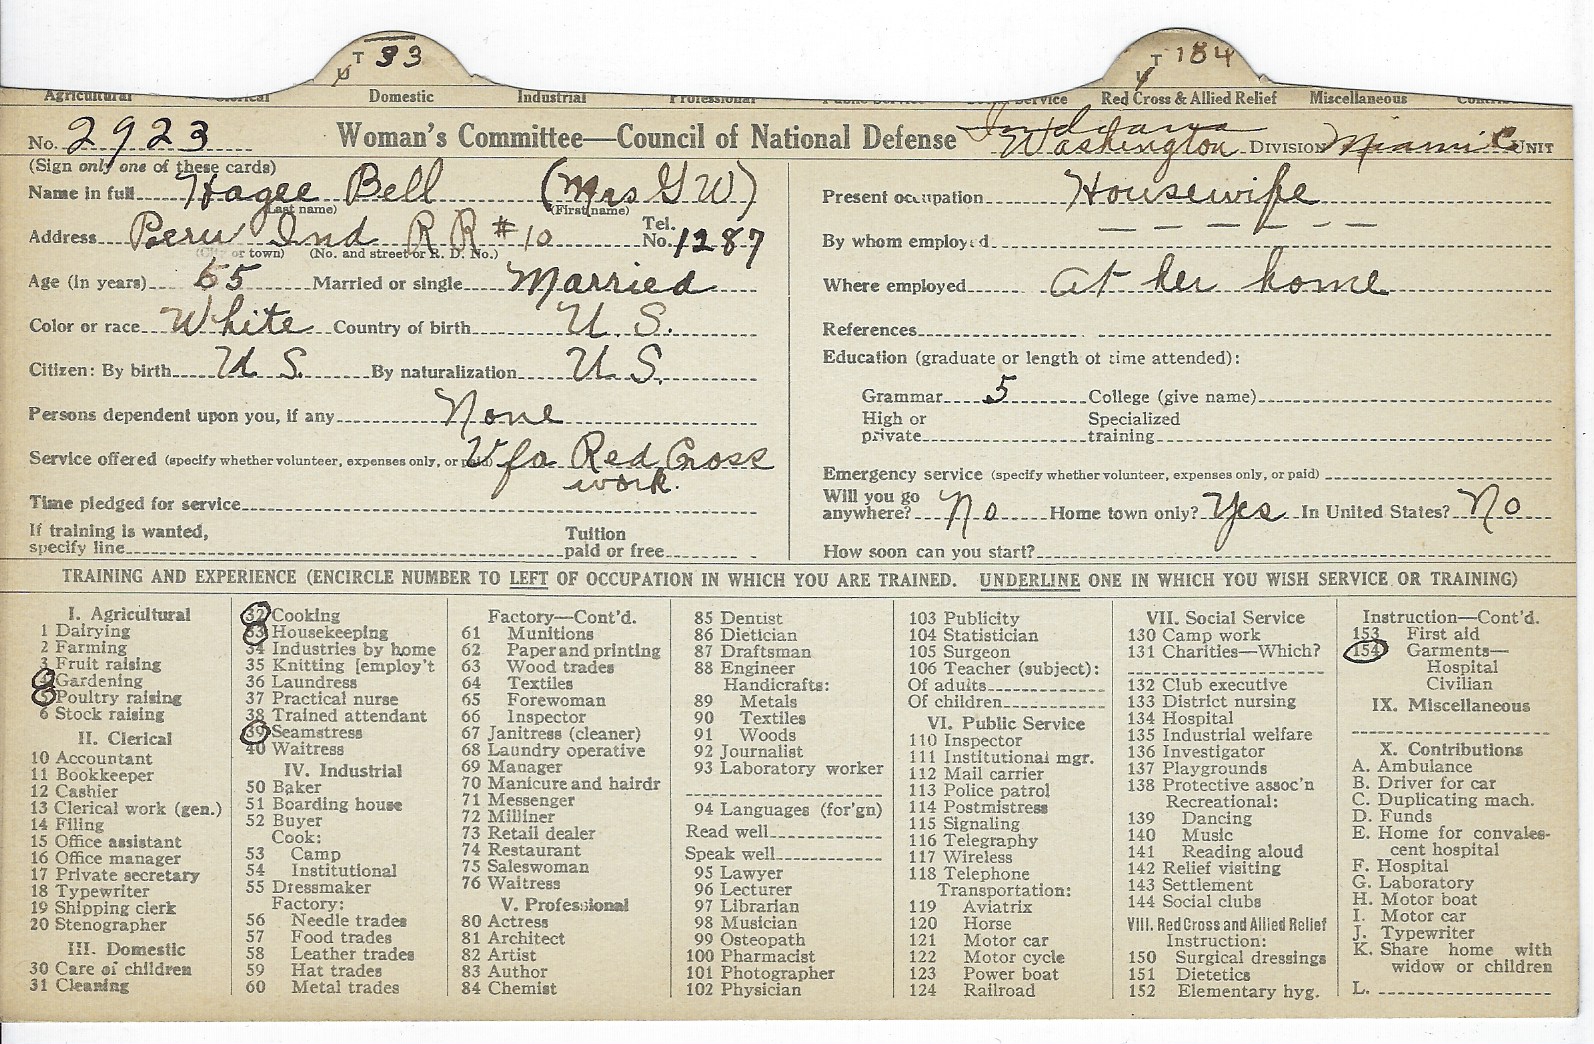 T 33 T 184
U U
Agricultural Clerical Domestic Industrial Professional Public Service Social Service Red Cross & Allied Relief Miscellaneous
No. 2923 Woman's Committee—Council of National Defense Indiana Washington Division Miami C Unit
(Sign only one of these cards)
Name in full Hagee Bell (Mrs G W)
(Last name) (First name)
Address Peru Ind R R # 10 Tel. No. 1287
(City or town) (No. and street or R. D. No.)
Age (in years) 55 Married or single Married
Color or race White Country of birth U. S.
Citizen: By birth U. S. By naturalization U S.
Persons dependent upon you, if any None
Service offered (specify whether volunteer, expenses only, or paid) V for Red Cross
work.
Time pledged for service
If training is wanted,
specify line
Tuition
paid or free
Present occupation Housewife
By whom employed — — — — — —
Where employed at her home
References
Education (graduate or length of time attended):
Grammar 5 College (give name)
High or
private
Specialized
training
Emergency service (specify whether volunteer, expenses only, or paid)
Will you go
anywhere? No Home town only? Yes In United States? No
How soon can you start?
TRAINING AND EXPERIENCE (ENCIRCLE NUMBER TO LEFT OF OCCUPATION IN WHICH YOU ARE TRAINED. UNDERLINE ONE IN WHICH YOU WISH SERVICE OR TRAINING)
I. Agricultural
1 Dairying
2 Farming
3 Fruit raising
4 Gardening
5 Poultry raising
6 Stock raising
II. Clerical
10 Accountant
11 Bookkeeper
12 Cashier
13 Clerical work (gen.)
14 Filing
15 Office assistant
16 Office manager
17 Private secretary
18 Typewriter
19 Shipping clerk
20 Stenographer
III. Domestic
30 Care of children
31 Cleaning
32 Cooking
33 Housekeeping
34 Industries by home
35 Knitting [employ't
36 Laundress
37 Practical nurse
38 Trained attendant
39 Seamstress
40 Waitress
IV. Industrial
50 Baker
51 Boarding house
52 Buyer
Cook:
53 Camp
54 Institutional
55 Dressmaker
Factory:
56 Needle trades
57 Food trades
58 Leather trades
59 Hat trades
60 Metal trades
Factory—Cont'd.
61 Munitions
62 Paper and printing
63 Wood trades
64 Textiles
65 Forewoman
66 Inspector
67 Janitress (cleaner)
68 Laundry operative
69 Manager
70 Manicure and hairdr
71 Messenger
72 Milliner
73 Retail dealer
74 Restaurant
75 Saleswoman
76 Waitress
V. Professional
80 Actress
81 Architect
82 Artist
83 Author
84 Chemist
85 Dentist
86 Dietician
87 Draftsman
88 Engineer
Handicrafts:
89 Metals
90 Textiles
91 Woods
92 Journalist
93 Laboratory worker
94 Languages (for'gn)
Read well
Speak well
95 Lawyer
96 Lecturer
97 Librarian
98 Musician
99 Osteopath
100 Pharmacist
101 Photographer
102 Physician
103 Publicity
104 Statistician
105 Surgeon
106 Teacher (subject):
Of adults
Of children
VI. Public Service
110 Inspector
111 Institutional mgr.
112 Mail carrier
113 Police patrol
114 Postmistress
115 Signaling
116 Telegraphy
117 Wireless
118 Telephone
Transportation:
119 Aviatrix
120 Horse
121 Motor car
122 Motor cycle
123 Power boat
124 Railroad
VII. Social Service
130 Camp work
131 Charities—Which?
132 Club executive
133 District nursing
134 Hospital
135 Industrial welfare
136 Investigator
137 Playgrounds
138 Protective assoc'n
Recreational:
139 Dancing
140 Music
141 Reading aloud
142 Relief visiting
143 Settlement
144 Social clubs
VIII. Red Cross and Allied Relief
Instruction:
150 Surgical dressings
151 Dietetics
152 Elementary hyg.
Instruction—Cont'd.
153 First aid
154 Garments—
Hospital
Civilian
IX. Miscellaneous
X. Contributions
A. Ambulance
B. Driver for car
C. Duplicating mach.
D. Funds
E. Home for convales-
cent hospital
F. Hospital
G. Laboratory
H. Motor boat
I. Motor car
J. Typewriter
K. Share home with
widow or children
L.